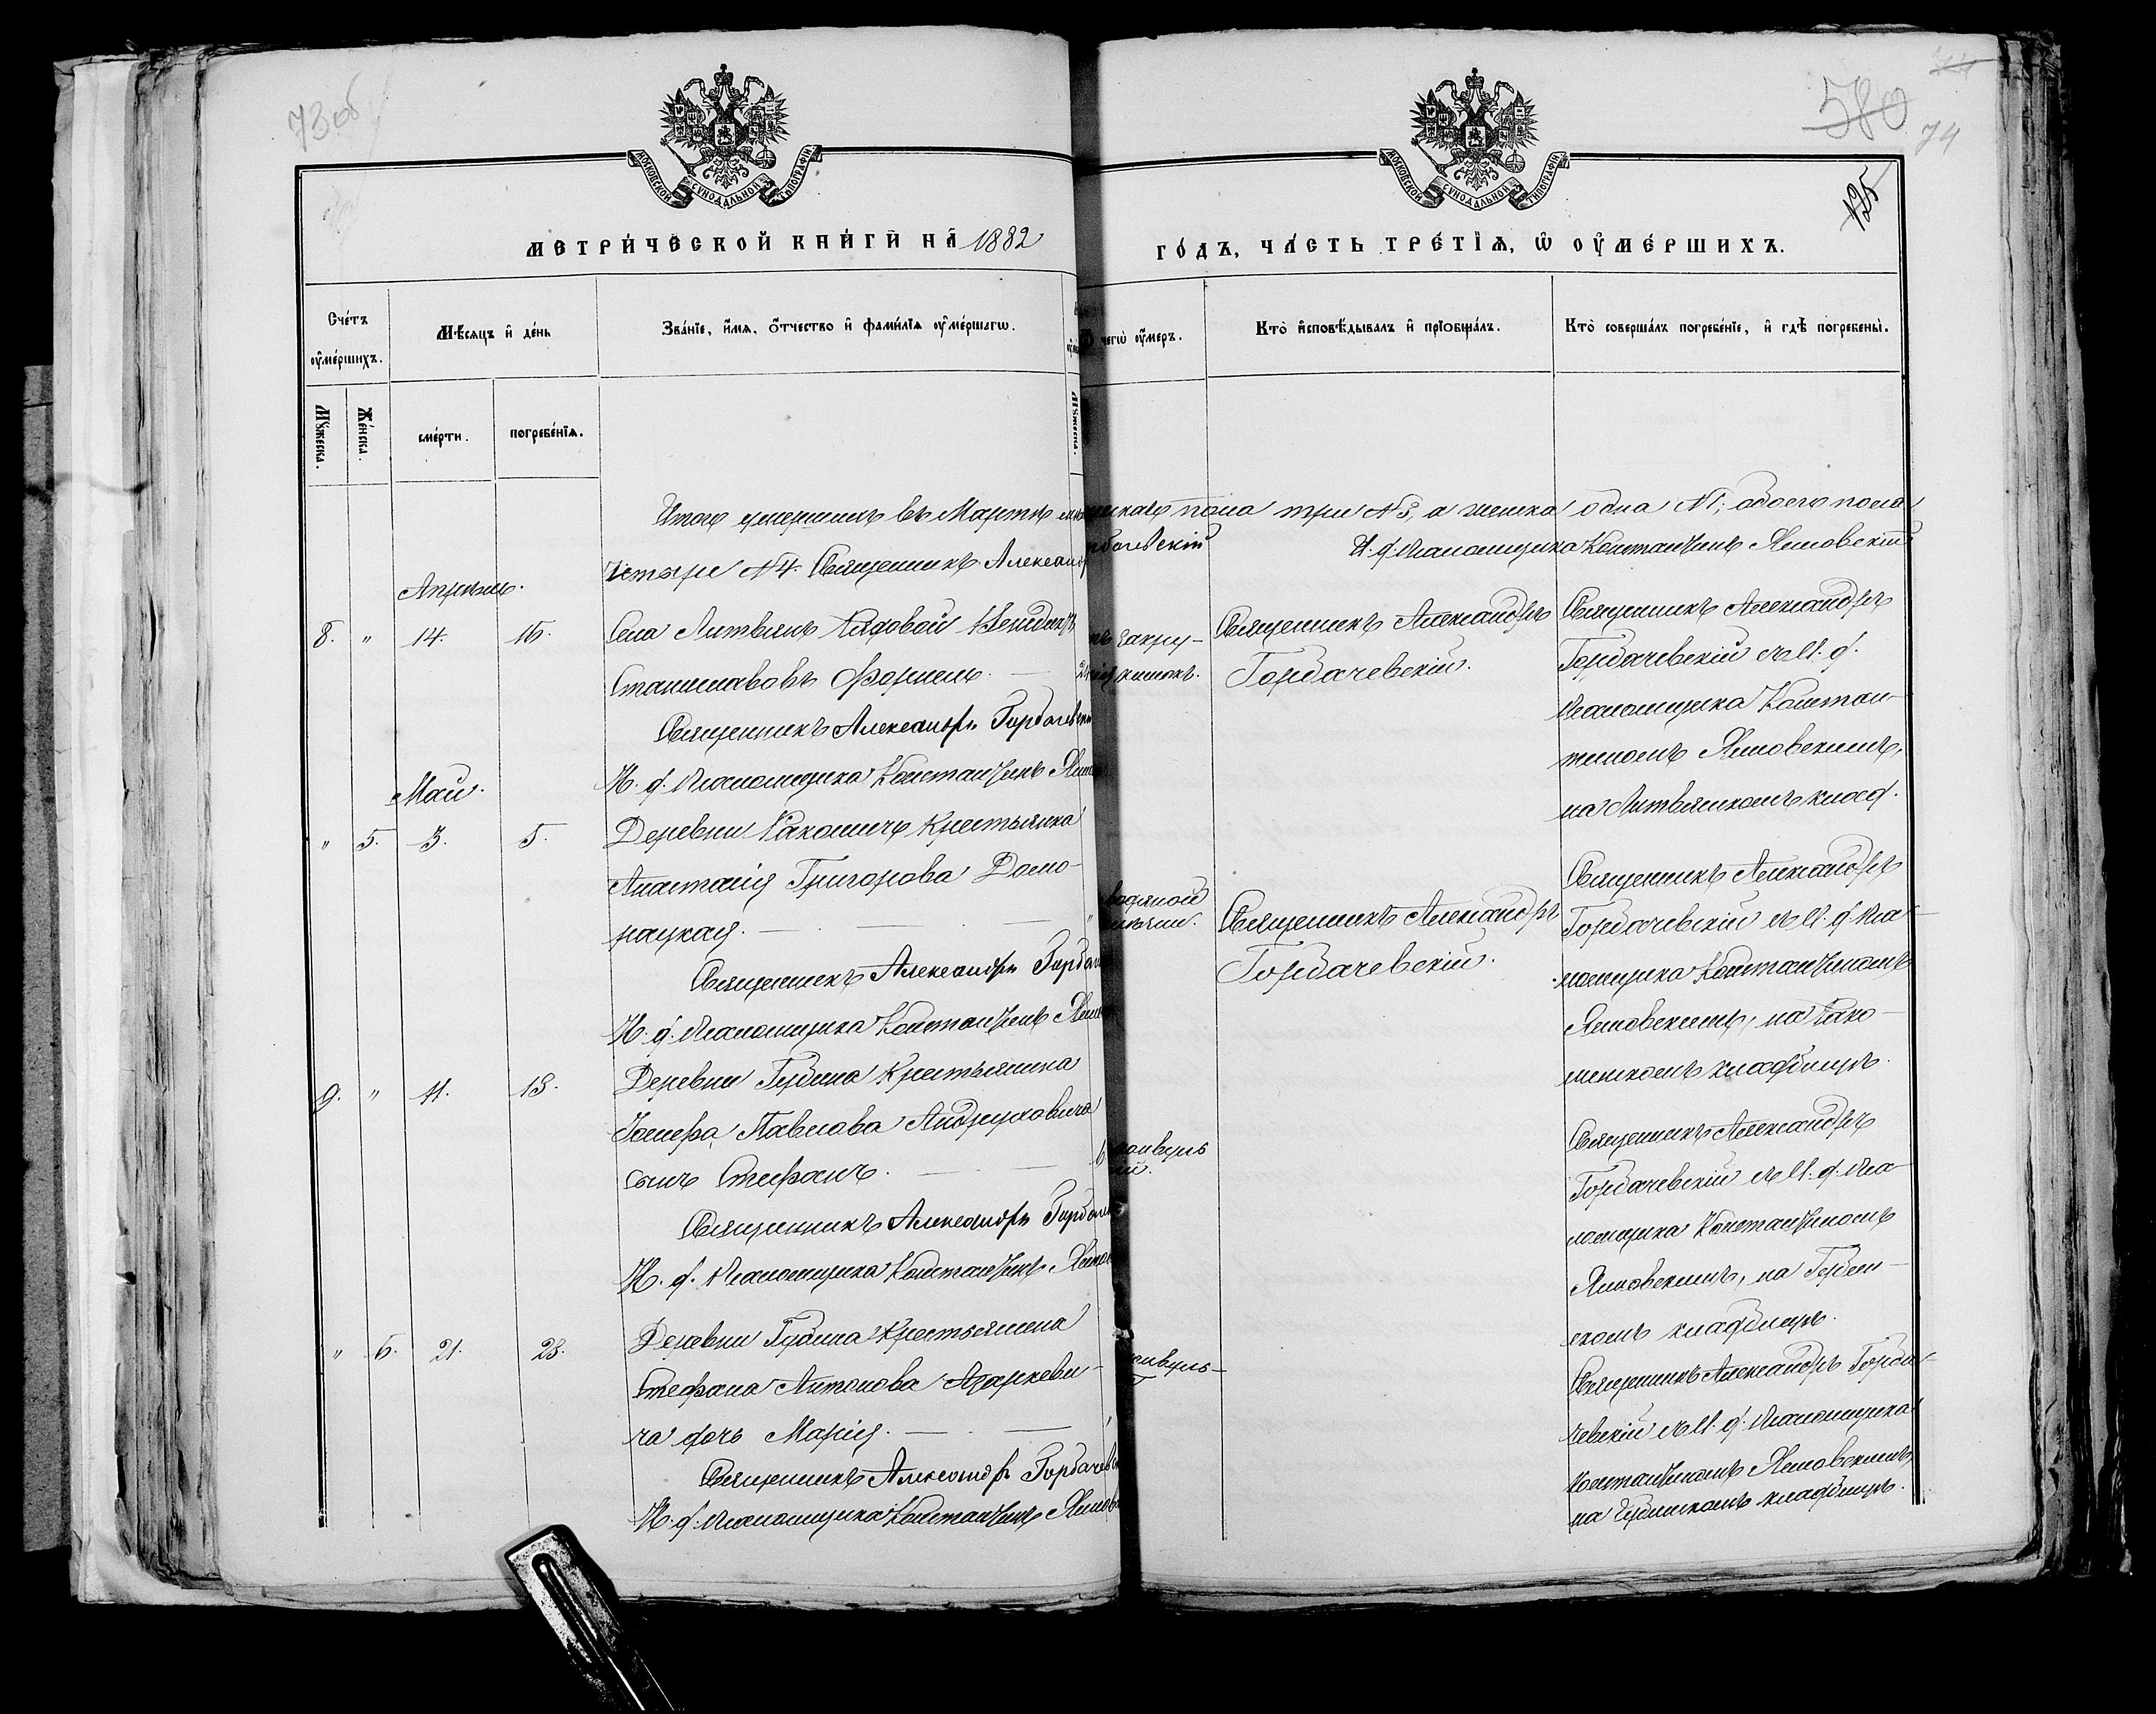 73 об
580
74
125
МОСКОВСКОЙ СѴНОДАЛЬНОЙ ТИПОГРАФІИ
МОСКОВСКОЙ СѴНОДАЛЬНОЙ ТИПОГРАФІИ
МЕТРИ́ЧЕСКОЙ КНИ́ГИ НА 1882
ГО́ДЪ, ЧА́СТЬ ТРЕ́ТІѦ, Ѡ ОУ҆МЕ́РШИХЪ.
Сче́тъ оу҆ме́ршихъ.
Мѣ́сяцъ и҆ де́нь
Зва́ніе, и҆́мѧ, ѻ҆́тчество и҆ фамилїѧ оу҆ме́ршагѡ.
чегѡ̀ оу҆́меръ.
Кто̀ и҆сповѣ́дывалъ и҆ прїѡбща́лъ.
Кто̀ соверша́лъ погребе́нїе, и҆ гдѣ̀ погребены̀.
Мꙋ́жеска.
Же́нска.
сме́рти.
погребе́нїѧ.
Итого умершихъ въ Мартѣ мужеска пола три №3, а женска одна №1; обоего пола
четыре №4. Священникъ Александръ Горбачевскій
И. д. Псаломщика Константинъ Яновскій
Апрѣль.
8. " 14. 16.
Села Литвянъ Рядовой
Станиславовъ
закру-
кишокъ.
Священникъ Александръ
Горбачевскій.
Священникъ Александръ
Горбачевскій съ И. д.
Псаломщика Констан-
тиномъ Яновскимъ,
на Литвянскомъ клад.
Священникъ Александръ Горбачевскій
И. д. Псаломщика Константинъ
Май.
" 5. 3. 5.
Деревни Ракошичъ Крестьянка
Анастасія Григорова Домо-
рацкая.
водяной
Священникъ Александръ
Горбачевскій.
Священникъ Александръ
Горбачевскій съ И. д. Пса-
ломщика Константиномъ
Яновскимъ, на Рако-
шискомъ кладбищѣ.
Священникъ Александръ
И. д. Псаломщика Константинъ
9. " 11. 13.
Деревни Губина Крестьянина
Іосифа Павлова Андруковича
сынъ Стефанъ.
конвуль
Священникъ Александръ
Горбачевскій съ И. д. Пса-
ломщика Константиномъ
Яновскимъ, на Губин-
скомъ кладбищѣ.
Священникъ Александръ
И. д. Псаломщика Константинъ
" 6. 21. 23.
Деревни Губина Крестьянина
Стефана Антонова Азаркеви-
ча дочь Марія.
Священникъ Александръ Горба-
чевскій съ И. д. Псаломщика
Константиномъ Яновскимъ,
на Губинскомъ кладбищѣ.
Священникъ Александръ Горбачевс
И. д. Псаломщика Константинъ